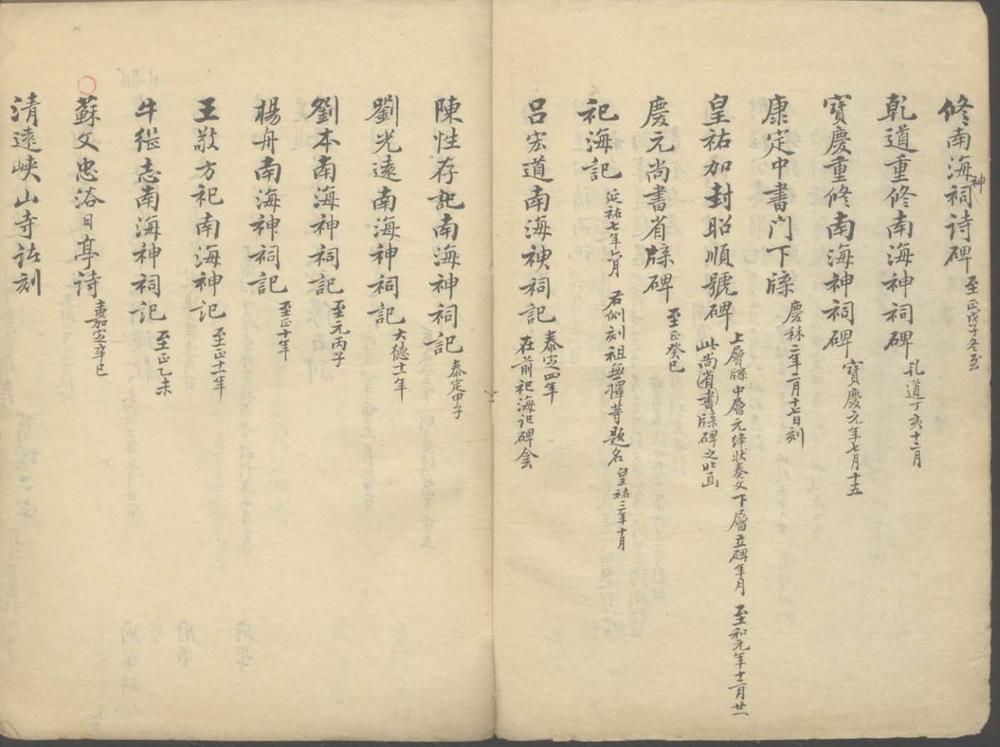 修南海神祠诗碑 至正戊子冬至
乾道重修南海神祠碑 乾道丁亥十二月
寶慶重修南海神祠碑 寶慶元年七月十五
康定中書門下牒 慶林二年二月十七日刻
皇祐加封昭順號碑 上層牒中層元絳狀奏文下層立碑年月 至和元年十二月廿一
此尚省書牒碑之
慶元尚書省牒碑 至正癸巳
祀海記 延祐七年六月 右側刻祖無擇等題名 皇祐三年十月
呂宏道南海神祠記 泰定四年
在前祀海记碑会
陳性存記南海神祠記 泰定甲子
劉光遠南海神祠記 大德十一年
劉本南海神祠記 至元丙子
楊舟南海神祠記 至正十年
王敬方祀南海神記 至正十一年
牛继志南海神祠記 至正乙未
蘇文忠浴日亭詩 嘉定辛巳
清遠峽山寺诗刻